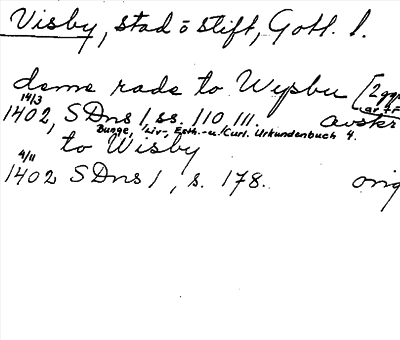 Visby, stad o stift, Gotl. l.
deme rade to Wysbu [2 ggr
14/3
1402, SDns 1, ss. 110, 111. avskr
Bunge, Liv-, Esth.- u. Curl. Urkundenbuch 4.
to Wisby
4/11
1402 SDns 1, s. 178. orig